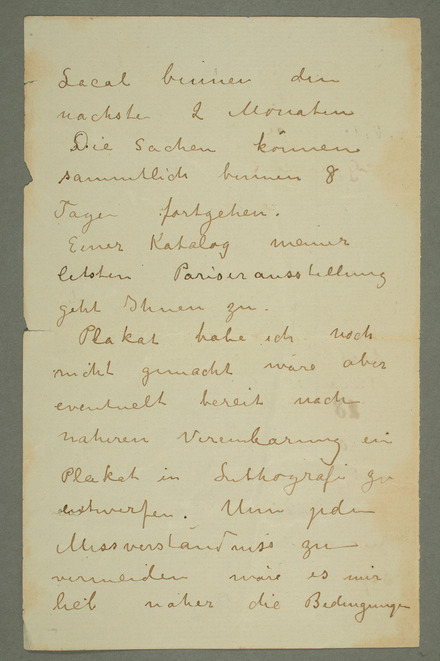 Local binnen den
nachste 2 Monaten
Die Sachen können
sammtlich binnen 8
Tagen fortgehen.
Einer Katalog meiner
letsten Pariserausstellung
geht Ihnen zu.
Plakat habe ich noch
nicht gemacht wäre aber
eventuelt bereit nach
naheren Vereinbarung ein
Plakat in Lithografi zu
entwerfen. Um jeden
Missverständniss zu
vermeiden wäre es mir
lieb naher die Bedingungen